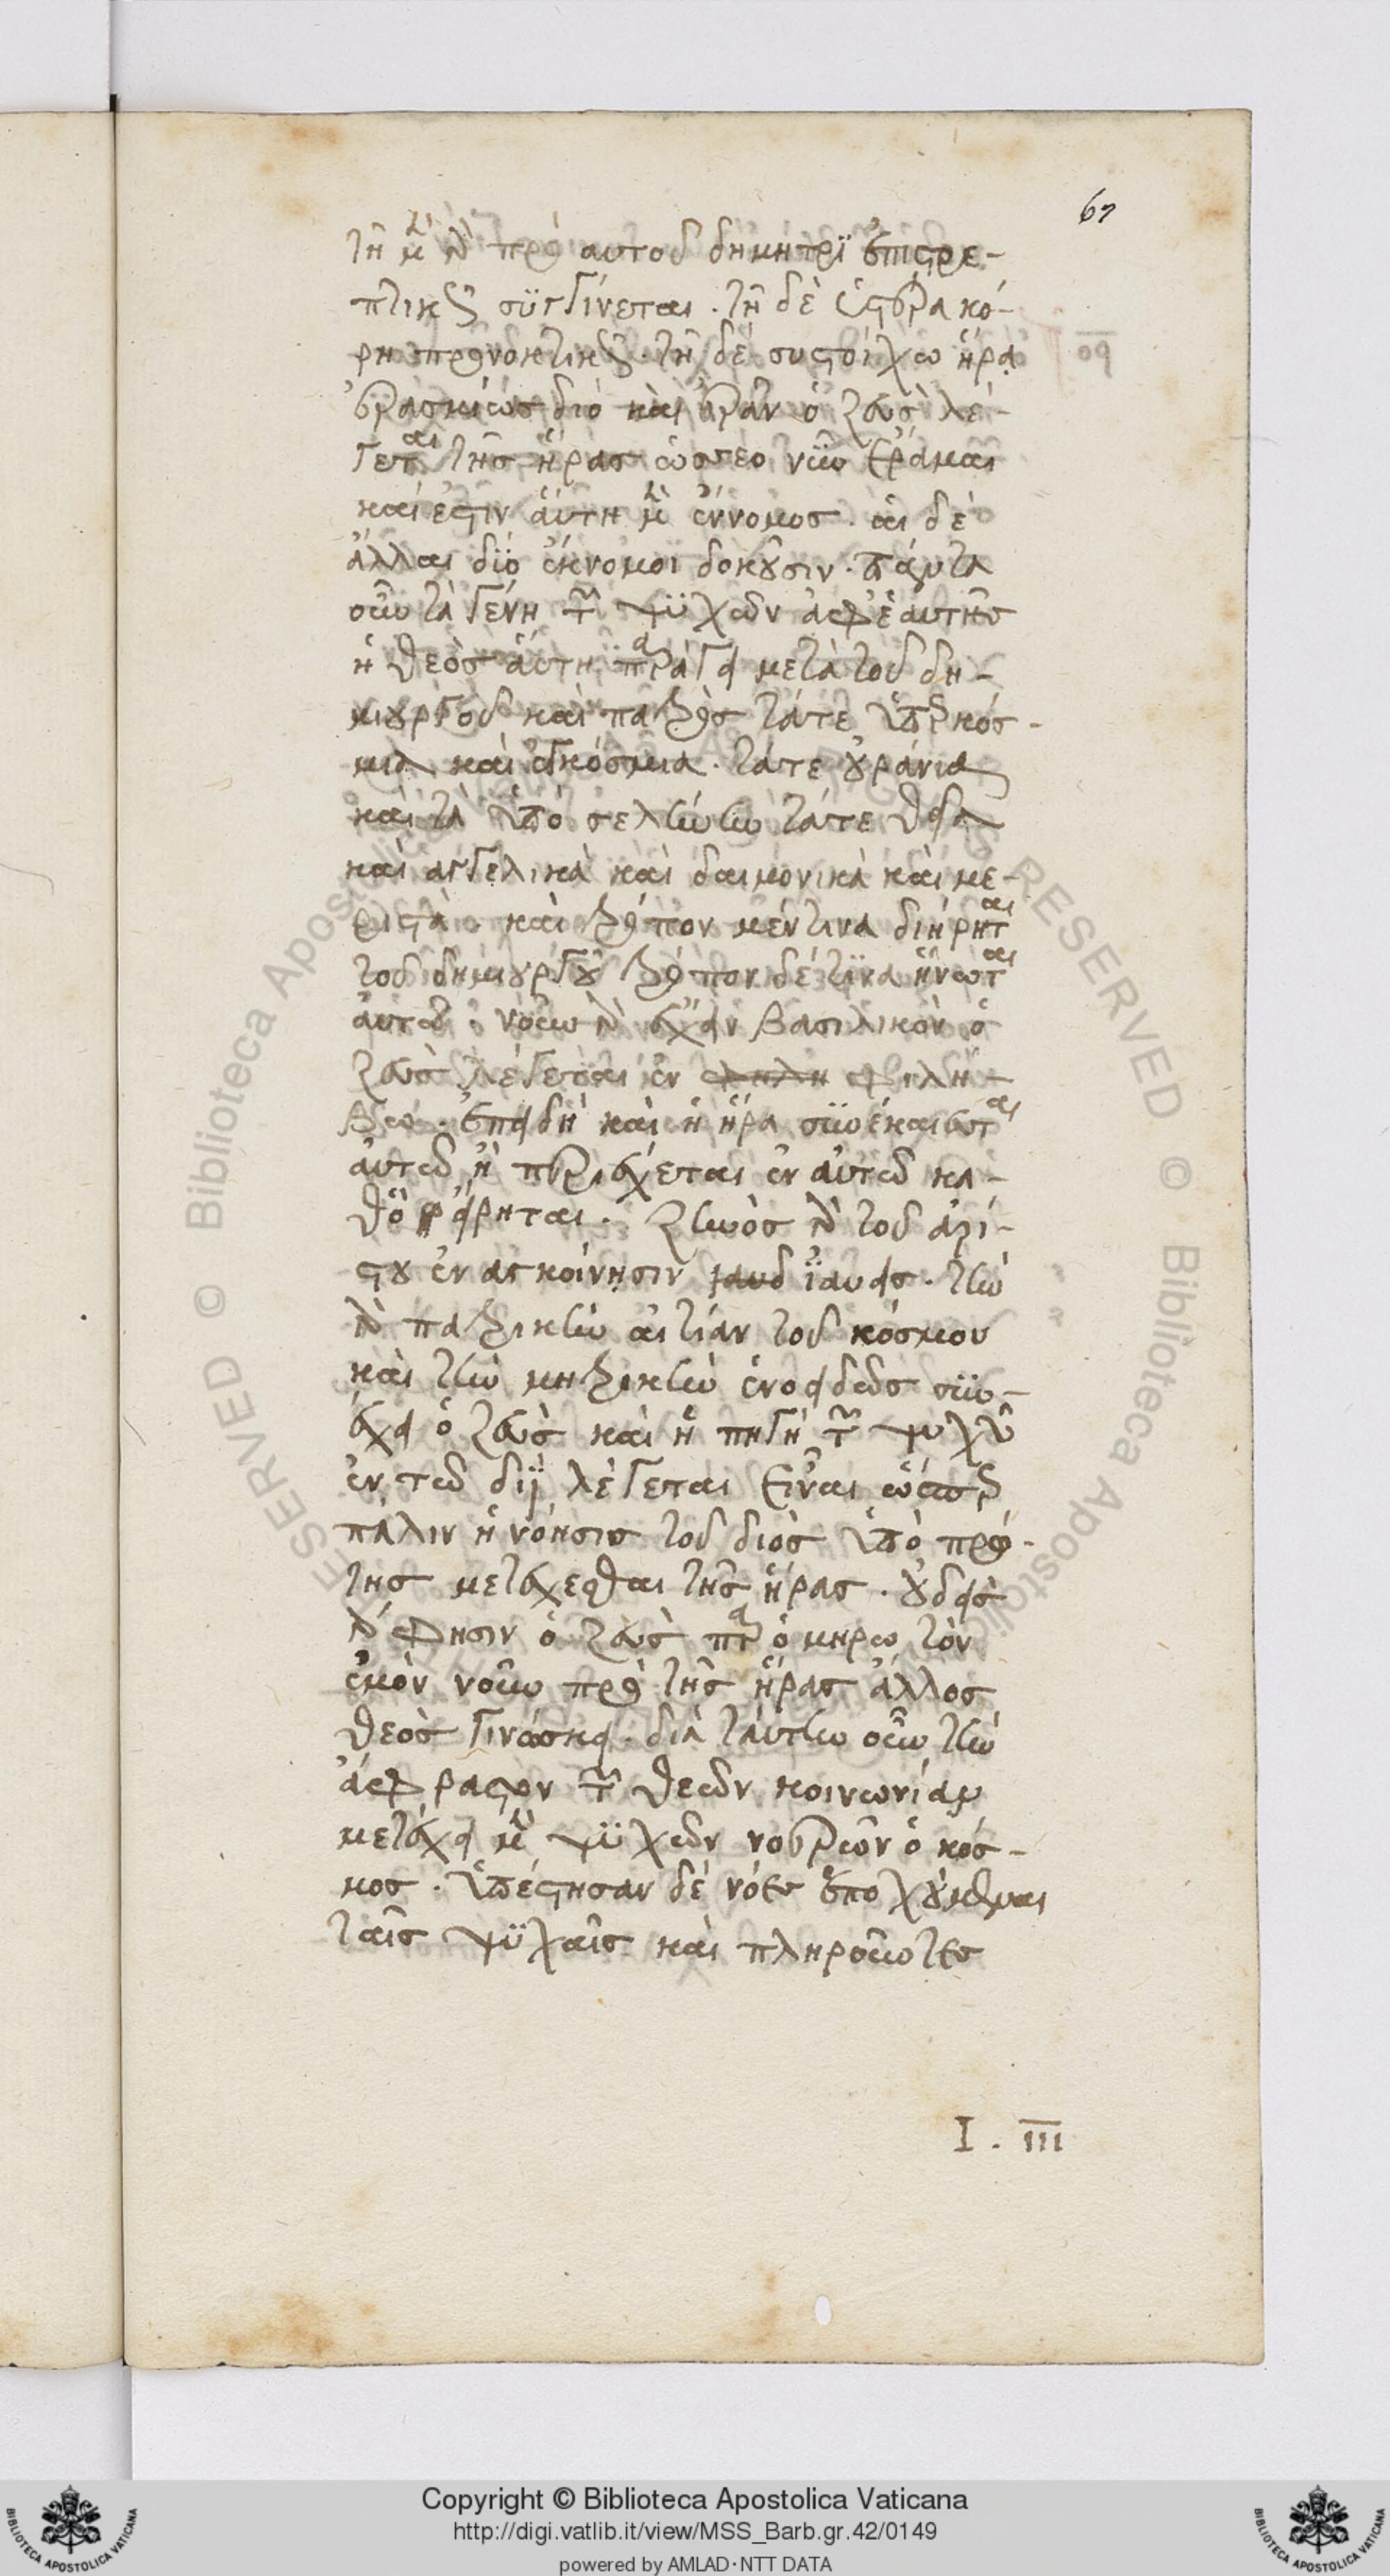 67
τῆ μὲν γὰρ πρὸ αὐτοῦ δήμητρι ἐπιστρε-
πτικῶς συγγίνεται. τῆ δὲ ἑτέρα κό-
ρη προνοητικῶς. τῆ δὲ συστοίχω ἥρα
ἐρασμίως διὸ καὶ ἐρᾶν ὁ ζεὺς λέ-
γεται τῆς ἥρας ὡς σέο νῦν ἔραμαι
καί ἐστιν αὕτη μὲν ἔννομος. αἱ δὲ
ἄλλαι δύο ἔκνομοι δοκοῦσιν. πάντα
οὖν τὰ γένη τῶν ψυχῶν ἀφ' ἑαυτῆς
ἡ θεὸς αὕτη παράγει μετὰ τοῦ δη-
μιουργοῦ καὶ πατρὸς τάτε ὑπερκόσ-
μια καὶ ἐγκόσμια. τάτε οὐράνια
καὶ τὰ ὑπὸ σελήνην τάτε θεῖα
καὶ ἀγγελικὰ καὶ δαιμονικὰ καὶ με-
ριστά. καὶ τρόπον μέν τινα διήρηται
τοῦ δημιουργοῦ τρόπον δέ τινα ἥνωται
αὐτῶ. νοῦν γὰρ ἔχειν βασιλικὸν ὁ
ζεὺς λέγεται ἐν φιλή-
βω. ἐπειδὴ καὶ ἡ ἥρα
αὐτῶ ἢ περιέχεται ἐν αὐτῶ κα-
θὸ εἴρηται. ζηνὸς γὰρ τοῦ ἀρί-
στου ἐν ἀγκοίνησιν ἰαύεις. τὴν
γὰρ πατρικὴν αἰτίαν τοῦ κόσμου
καὶ τὴν μητρικὴν ἑνοειδῶς συν-
έχει ὁ ζεὺς καὶ ἡ πηγὴ τῶν ψυχῶν
ἐν τῶ διῒ λέγεται εἶναι ὥσπερ
πάλιν ἡ νόησις τοῦ διὸς ὑπὸ πρώ-
της μετέχεσθαι τῆς ἥρας. οὐδεὶς
γὰρ φησὶν ὁ ζεὺς παρ' ὁμήρω τὸν
ἐμὸν νοῦν πρὸ τῆς ἥρας ἄλλος
θεὸς γινώσκει. διὰ ταύτην οὖν τὴν
ἄφραστον τῶν θεῶν κοινωνίαν
μετέχει μὲν ψυχῶν νοερῶν ὁ κόσ-
μος. ὑπέστησαν δὲ νόες ἐποχούμενοι
ταῖς ψυχαῖς καὶ πληροῦντες
I . III
Copyright © Biblioteca Apostolica Vaticana
http://digi.vatlib.it/view/MSS_Barb.gr.42/0149
powered by AMLAD·NTT DATA